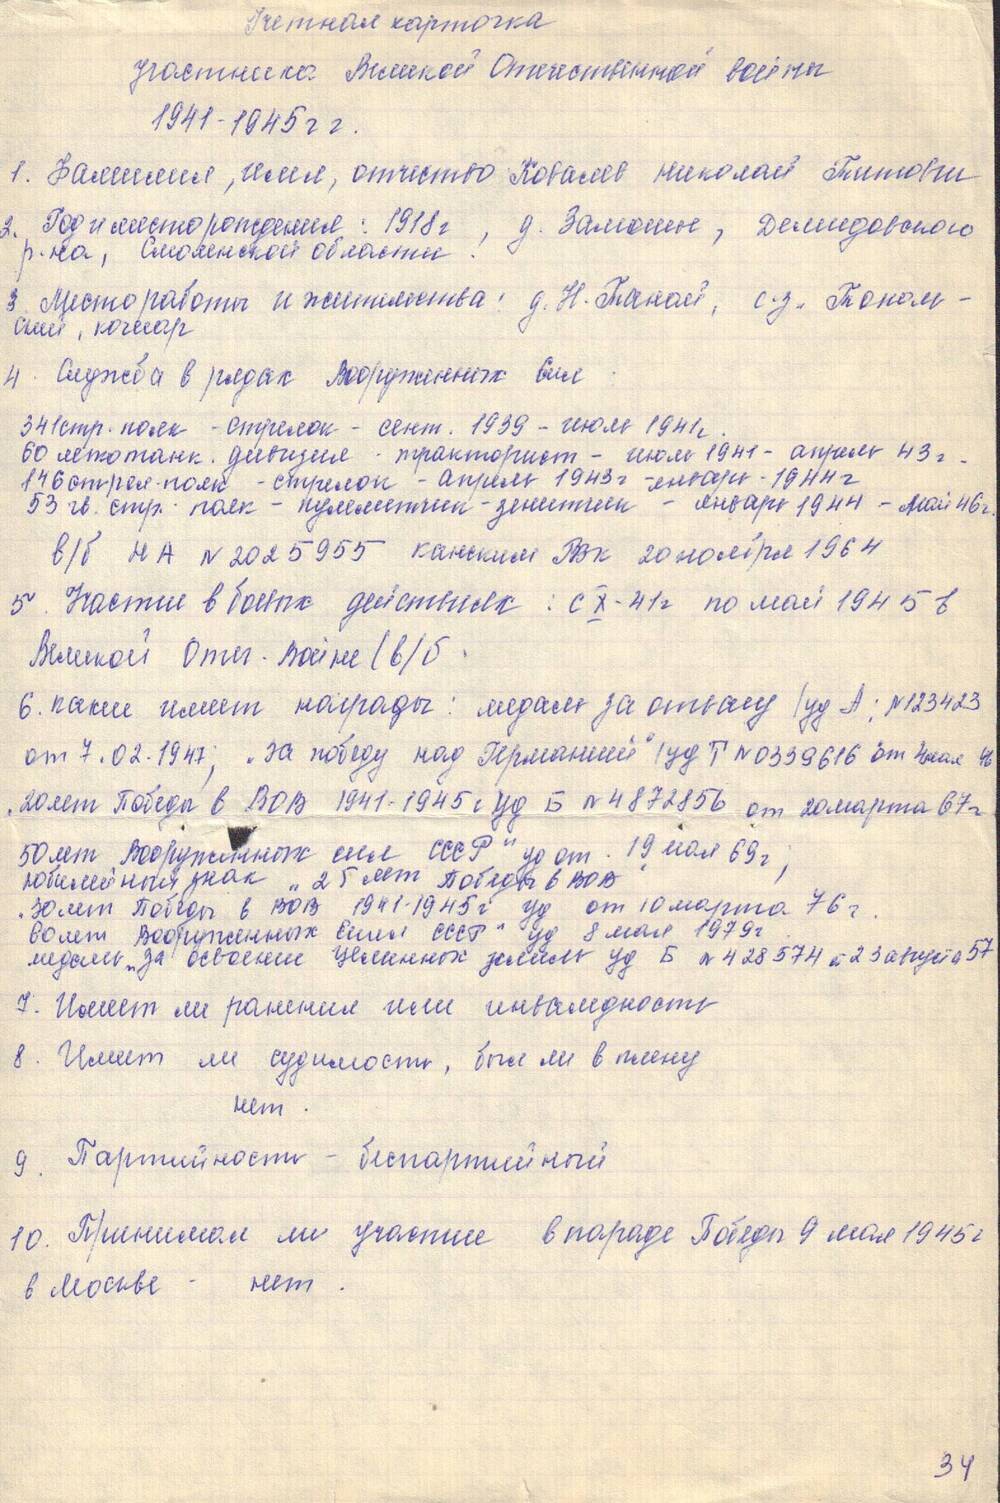 Учетная карточка
участника Великой Отечественной войны
1941-1945 г г.
1. Фамилия, имя, отчество Ковалев Николай Титович
2. Год и место рождения: 1918г, д. Замошье, Демидовского
р-на, Смоленской области.
3 Место работы и жительства: д. Н-Танай, с-з. Тополь-
ский, кочегар
4. Служба в рядах Вооруженных Сил
341 стр. полк - стрелок - сент. 1939 - июль 1941г.
60 легкотанк. дивизия - тракторист - июль 1941 - апрель 43г.
146 стрел. полк - стрелок - апрель 1943г - январь 1944г
53 гв. стр. полк - пулеметчик - зенитчик - январь 1944 - май 46г.
в/б НА N 2025955 Канским РВК 20 ноября 1964
5. Участие в боевых действиях: с X-41г по май 1945 в
Великой Отеч. Войне (в/б.
6. какие имеет награды: медаль за отвагу /уд А; N123423
от 7.02.1947; "За победу над Германией" /уд Г N0339616 от мая 46
"20 лет Победы в ВОВ 1941-1945г уд Б N4872856 от 20 марта 67г
50 лет Вооруженных сил СССР" уд от 19 мая 69г;
юбилейный знак "25 лет Победы в ВОВ"
"30 лет Победы в ВОВ 1941-1945г уд от 10 марта 76г.
60 лет Вооруженных Сил СССР" уд 8 мая 1979г.
медаль "За освоение Целинных земель уд Б N428574 от 23 августа 57
7. Имеет ли ранения или инвалидность
8. Имеет ли судимость, был ли в плену
нет.
9. Партийность - беспартийный
10. Принимал ли участие в параде Победы 9 мая 1945г
в Москве - нет.
34